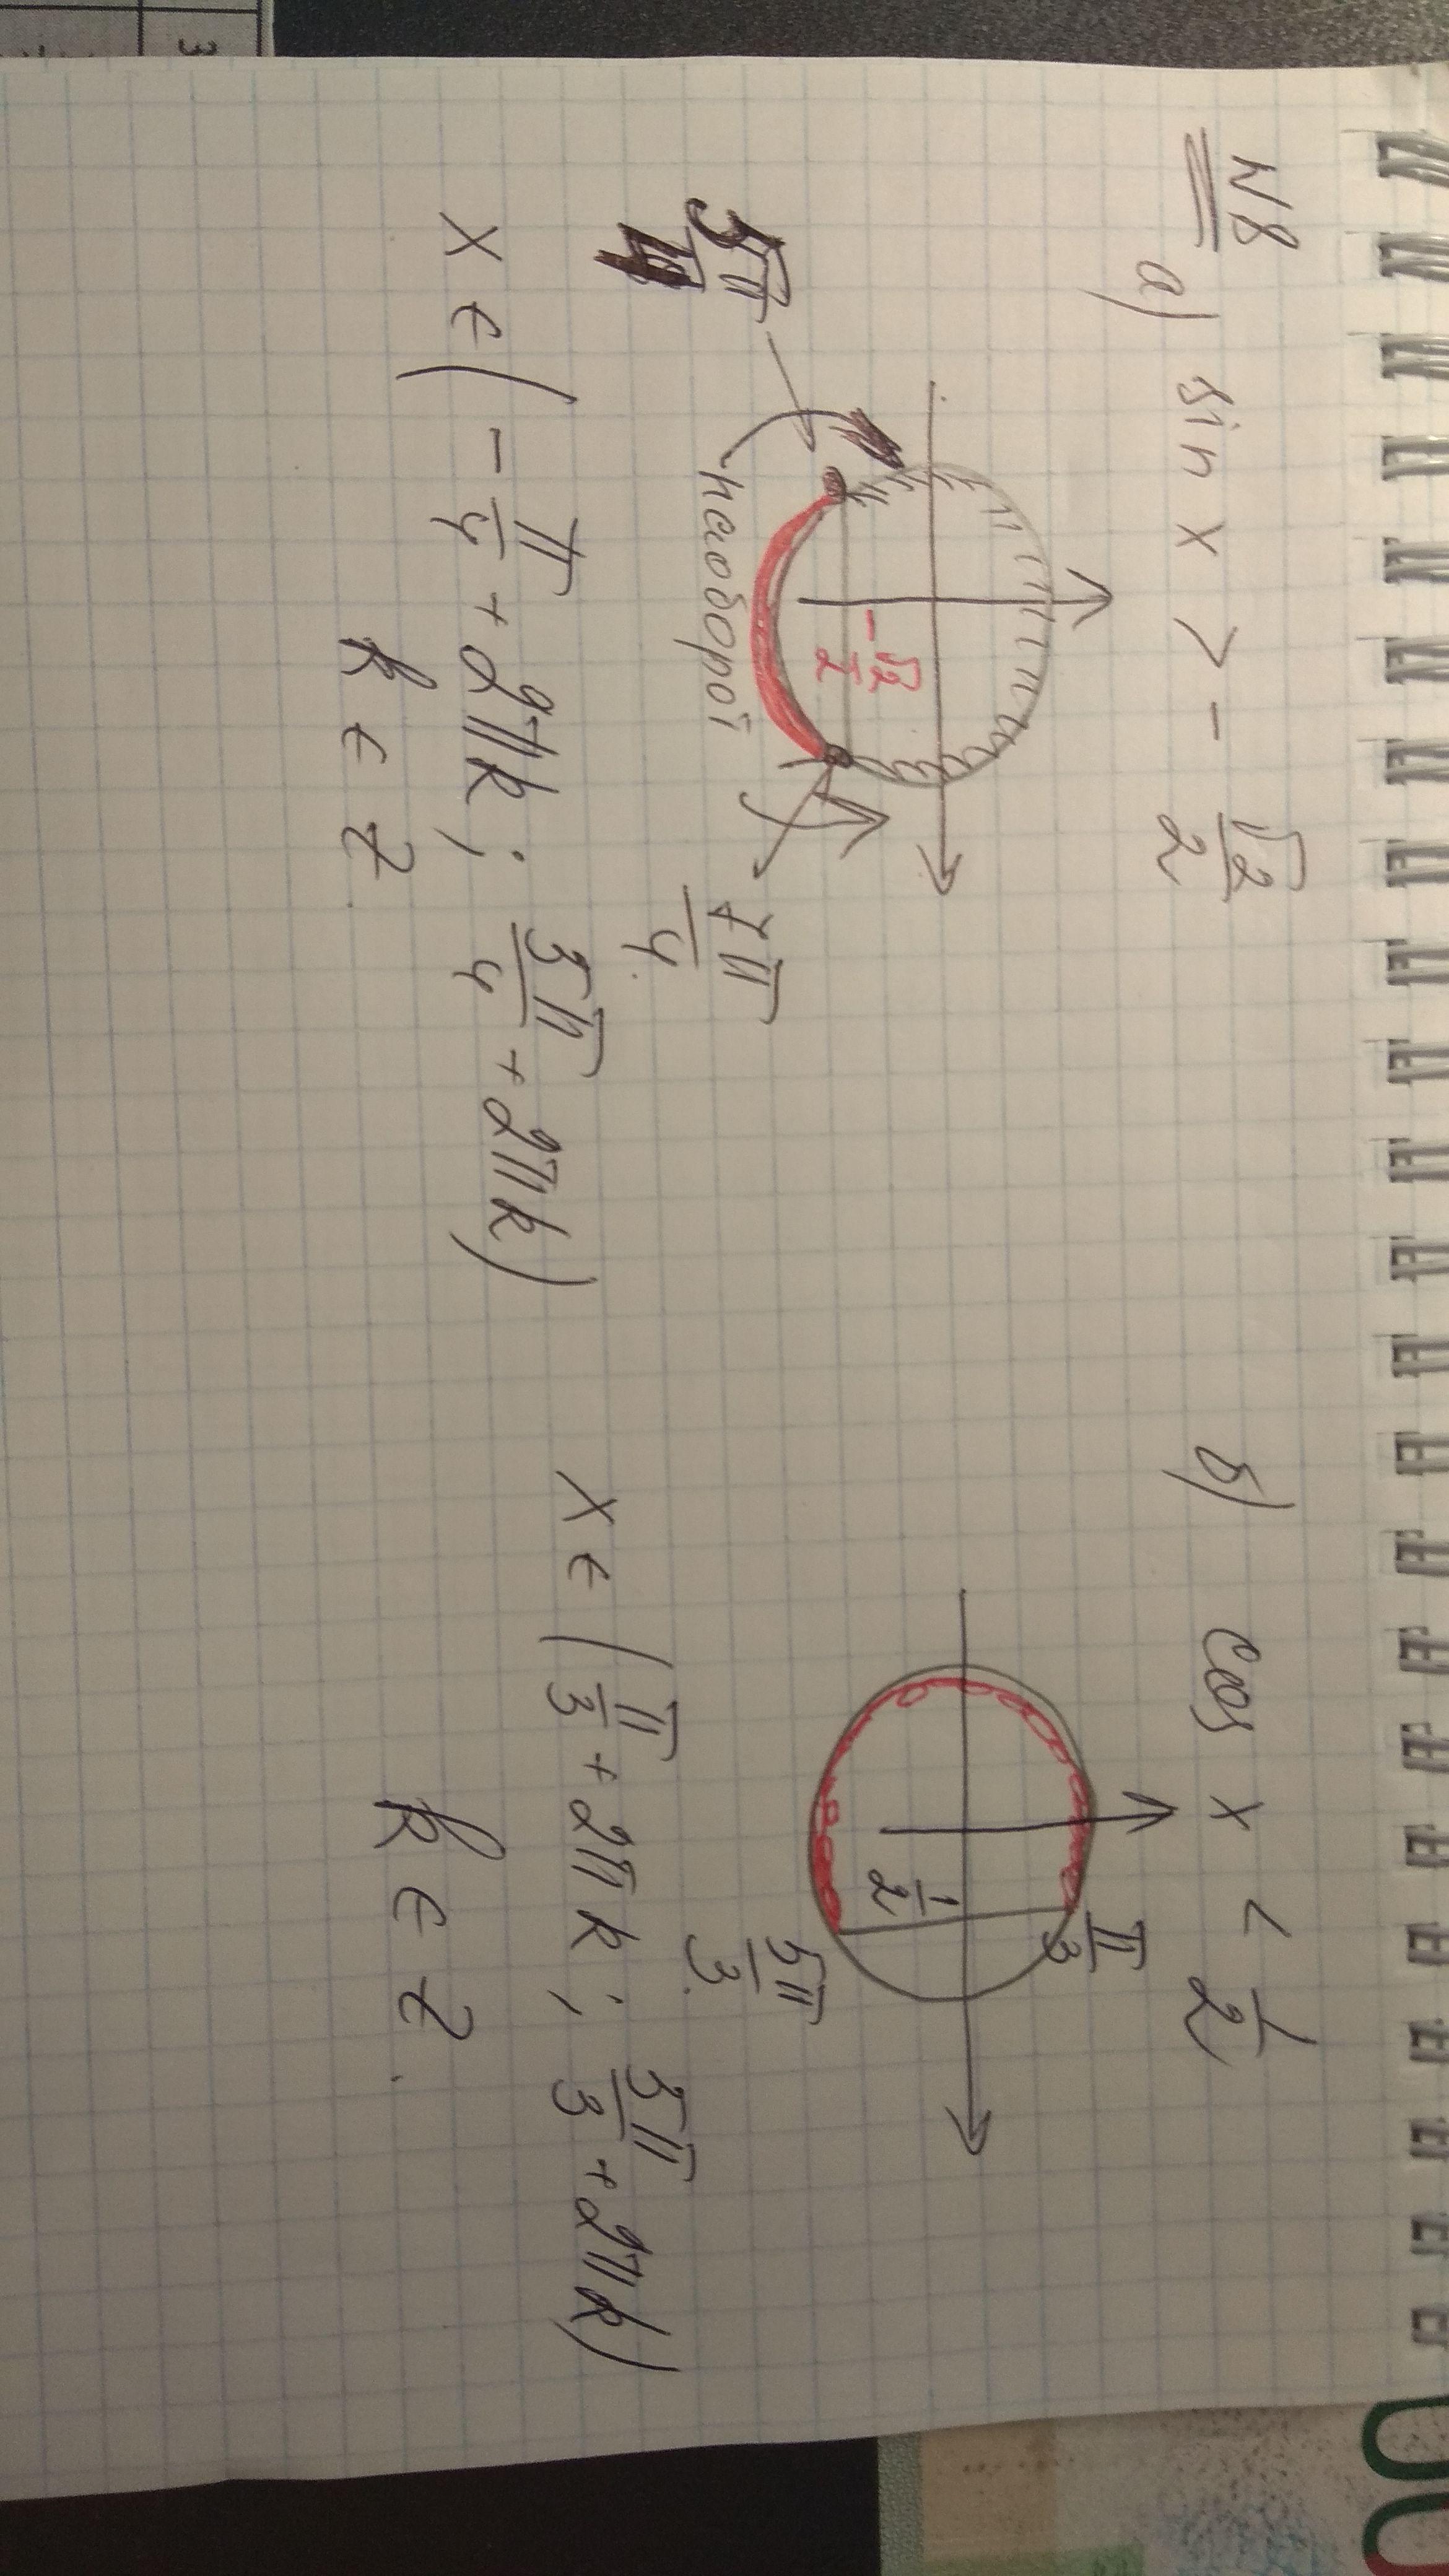 N8
а) sin x > - √2/2
-√2/2
5π/4
наоборот
7π/4
x ∈ (-π/4 + 2πk; 5π/4 + 2πk)
k ∈ Z.
б) cos x < 1/2
π/3
1/2
5π/3
x ∈ (π/3 + 2πk; 5π/3 + 2πk)
k ∈ Z.
3
00